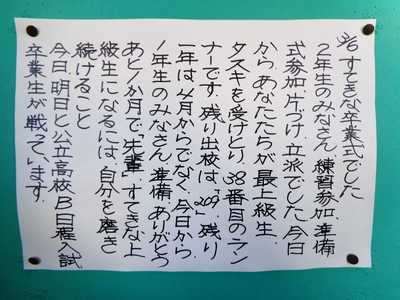 3/6 すてきな卒業式でした
2年生のみなさん 練習参加、準備
式参加、片づけ、立派でした。今日
から、あなたたちが最上級生
タスキを受けとり、38番目のラン
ナーです。残り出校は、"209"残り
一年は、4月からでなく、今日から
1年生のみなさん、準備、ありがとう
あと1ヶ月で、"先輩"すてきな上
級生になるには、自分を磨き
続けること
今日、明日と公立高校B日程入試
卒業生が戦っています。